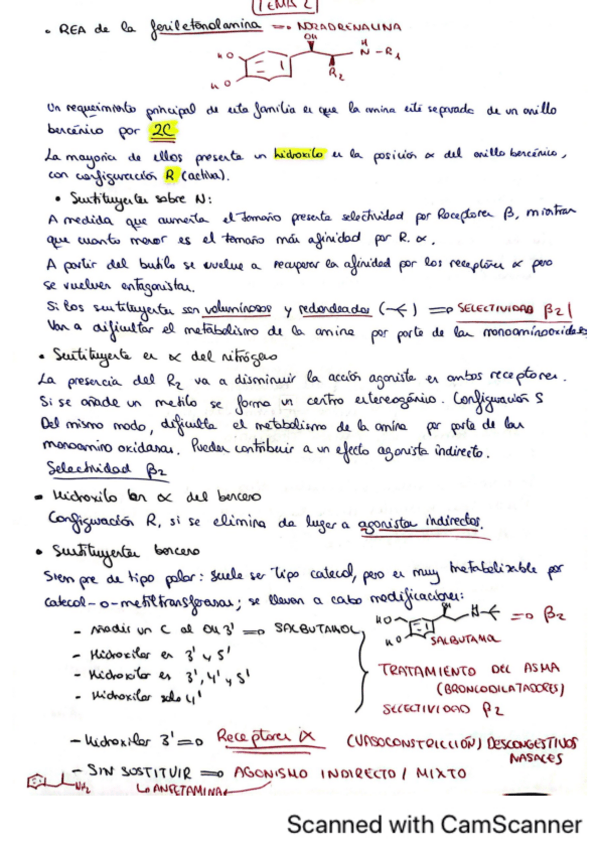 TEMA 2
• REA de la feniletanolamina => • NORADRENALINA
OH
HO
H
N-R1
R2
HO
Un requerimiento principal de esta familia es que la amina esté separada de un anillo
bencénico por 2C
La mayoría de ellos presenta un hidroxilo en la posición α del anillo bencénico,
con configuración R (activa).
• Sustituyentes sobre N:
A medida que aumenta el tamaño presenta selectividad por Receptores β, mientras
que cuanto menor es el tamaño más afinidad por R. α.
A partir del butilo se vuelve a recuperar la afinidad por los receptores α pero
se vuelven antagonistas.
Si los sustituyentes son voluminosos y redondeados => SELECTIVIDAD β2
Van a dificultar el metabolismo de la amina por parte de las monoaminooxidasas
• Sustituyente en α del nitrógeno
La presencia del R2 va a disminuir la acción agonista en ambos receptores.
Si se añade un metilo se forma un centro estereogénico. Configuración S
Del mismo modo, dificulta el metabolismo de la amina por parte de las
monoamino oxidasas. Pueden contribuir a un efecto agonista indirecto.
Selectividad β2
- Hidroxilo en α del benceno
Configuración R, si se elimina da lugar a agonistas indirectos.
• Sustituyentes benceno
Siempre de tipo polar: suele ser tipo catecol, pero es muy metabolizable por
catecol-o-metiltransferasas; se llevan a cabo modificaciones:
HO
H
N
=> β2
HO
SALBUTAMOL
- Añadir un C al OH 3' => SALBUTAMOL
- Hidroxilos en 3' y 5'
- Hidroxilos en 3', 4' y 5'
- Hidroxilo solo 4'
TRATAMIENTO DEL ASMA
(BRONCODILATADORES)
SELECTIVIDAD β2
- Hidroxilos 3' => Receptores α (VASOCONSTRICCIÓN) DESCONGESTIVOS
NASALES
- SIN SUSTITUIR => AGONISMO INDIRECTO / MIXTO
NH2
ANFETAMINA
Scanned with CamScanner